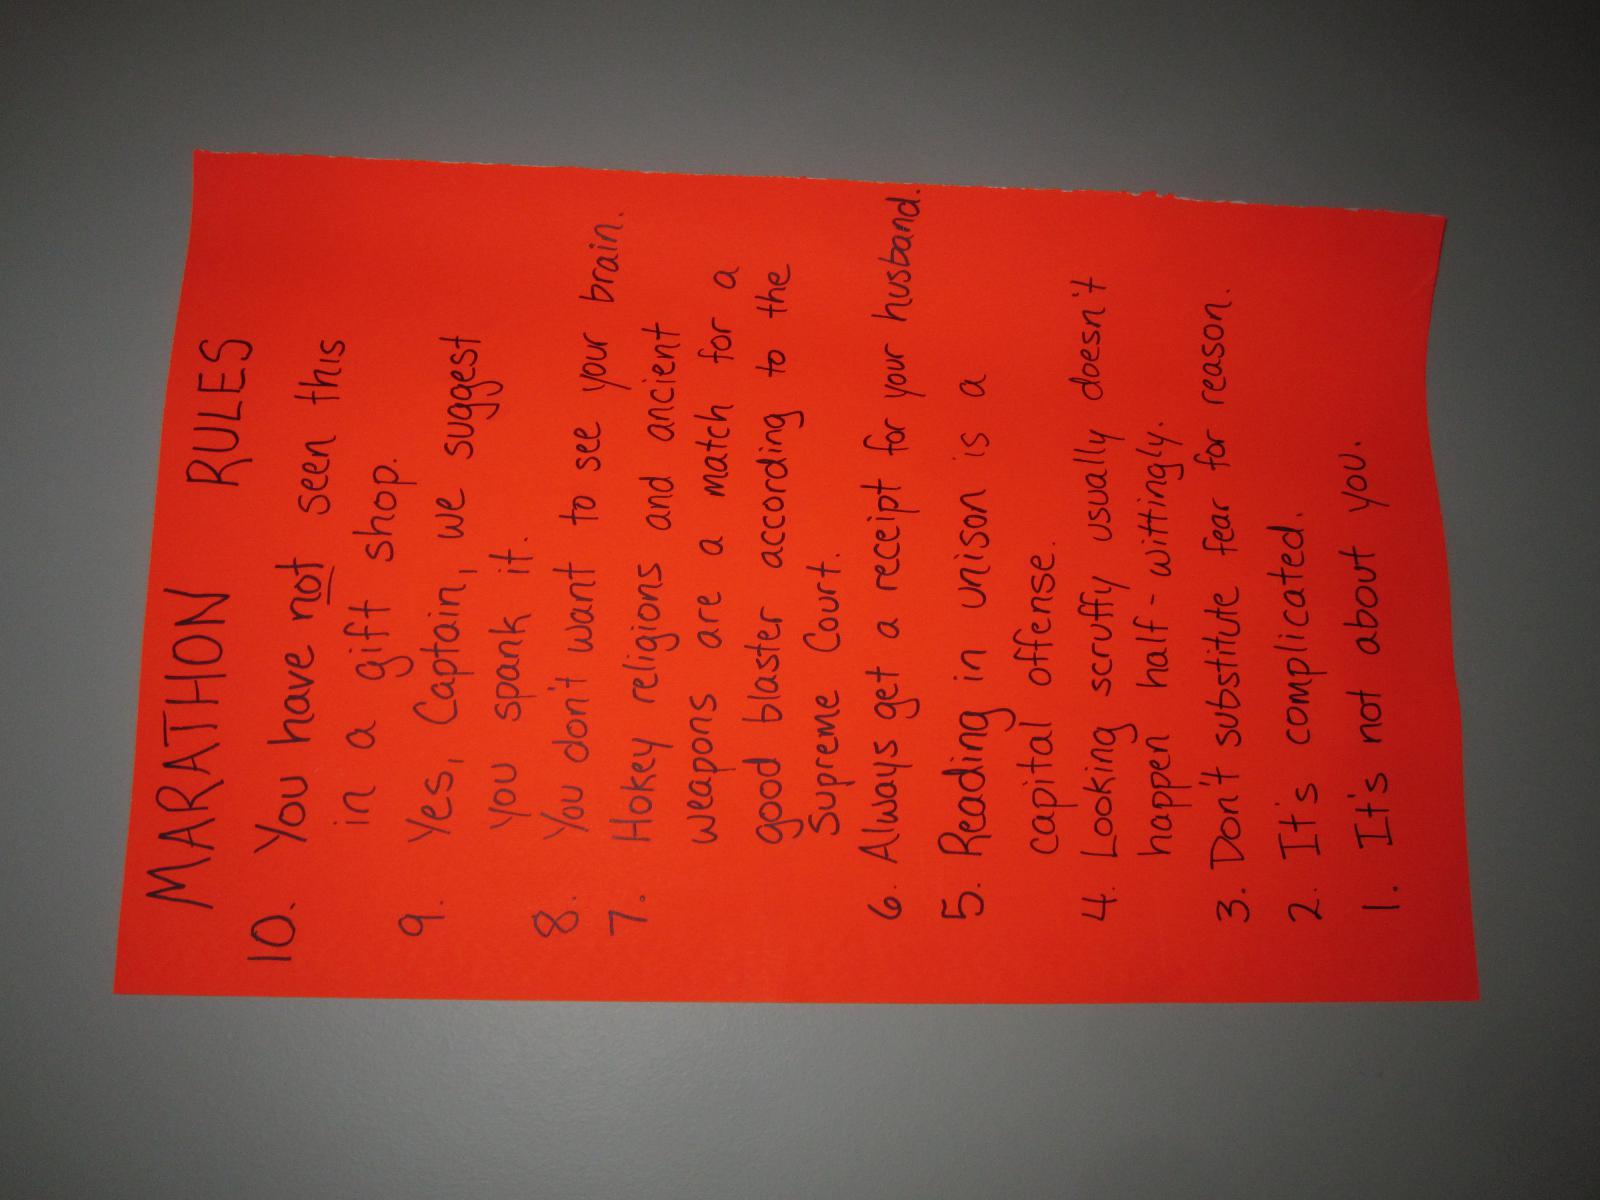 MARATHON RULES
10. You have not seen this
in a gift shop.
9. Yes, Captain, we suggest
you spank it.
8. You don't want to see your brain.
7. Hokey religions and ancient
weapons are a match for a
good blaster according to the
Supreme Court.
6. Always get a receipt for your husband.
5. Reading in unison is a
capital offense.
4. Looking scruffy usually doesn't
happen half-wittingly.
3. Don't substitute fear for reason.
2. It's complicated.
1. It's not about you.